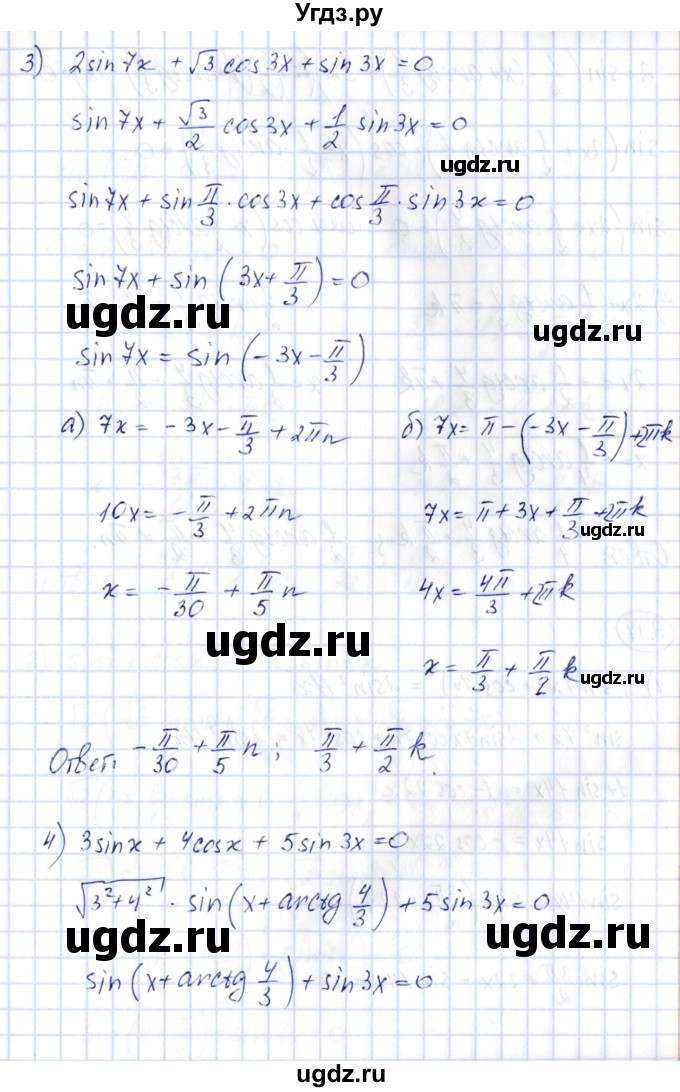 Угдз.ру
3) 2sin7x + √3 cos3x + sin3x = 0
sin7x + √3/2 cos3x + 1/2 sin3x = 0
ugdz.ru
sin7x + sin π/3 · cos3x + cos π/3 · sin3x = 0
sin7x + sin (3x + π/3) = 0
ugdz.ru
ugdz.ru
sin7x = sin (-3x - π/3)
а) 7x = -3x - π/3 + 2πn
б) 7x = π - (-3x - π/3) + 2πk
10x = -π/3 + 2πn
7x = π + 3x + π/3 + 2πk
ugdz.ru
x = -π/30 + π/5 n
4x = 4π/3 + 2πk
ugdz.ru
x = π/3 + π/2 k
ugdz.ru
Ответ: -π/30 + π/5 n ; π/3 + π/2 k.
4) 3sinx + 4cosx + 5sin3x = 0
√(3²+4²) · sin (x + arctg 4/3) + 5sin3x = 0
ugdz.ru
ugdz.ru
sin (x + arctg 4/3) + sin3x = 0
ugdz.ru